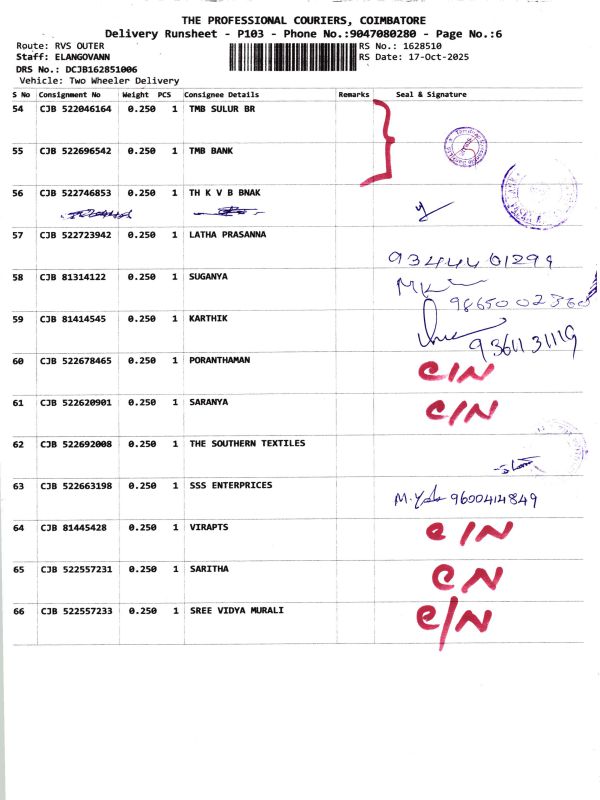 THE PROFESSIONAL COURIERS, COIMBATORE
Delivery Runsheet - P103 - Phone No.:9047080280 - Page No.:6
Route: RVS OUTER RS No.: 1628510
Staff: ELANGOVANN RS Date: 17-Oct-2025
DRS No.: DCJB162851006
Vehicle: Two Wheeler Delivery
S No Consignment No Weight PCS Consignee Details Remarks Seal & Signature
54 CJB 522046164 0.250 1 TMB SULUR BR
55 CJB 522696542 0.250 1 TMB BANK
56 CJB 522746853 0.250 1 TH K V B BNAK
57 CJB 522723942 0.250 1 LATHA PRASANNA
9344401299
58 CJB 81314122 0.250 1 SUGANYA
9865002360
59 CJB 81414545 0.250 1 KARTHIK
9361131119
60 CJB 522678465 0.250 1 PORANTHAMAN C/N
61 CJB 522620901 0.250 1 SARANYA C/N
62 CJB 522692008 0.250 1 THE SOUTHERN TEXTILES
63 CJB 522663198 0.250 1 SSS ENTERPRICES
9600414849
64 CJB 81445428 0.250 1 VIRAPTS C/N
65 CJB 522557231 0.250 1 SARITHA CN
66 CJB 522557233 0.250 1 SREE VIDYA MURALI C/N